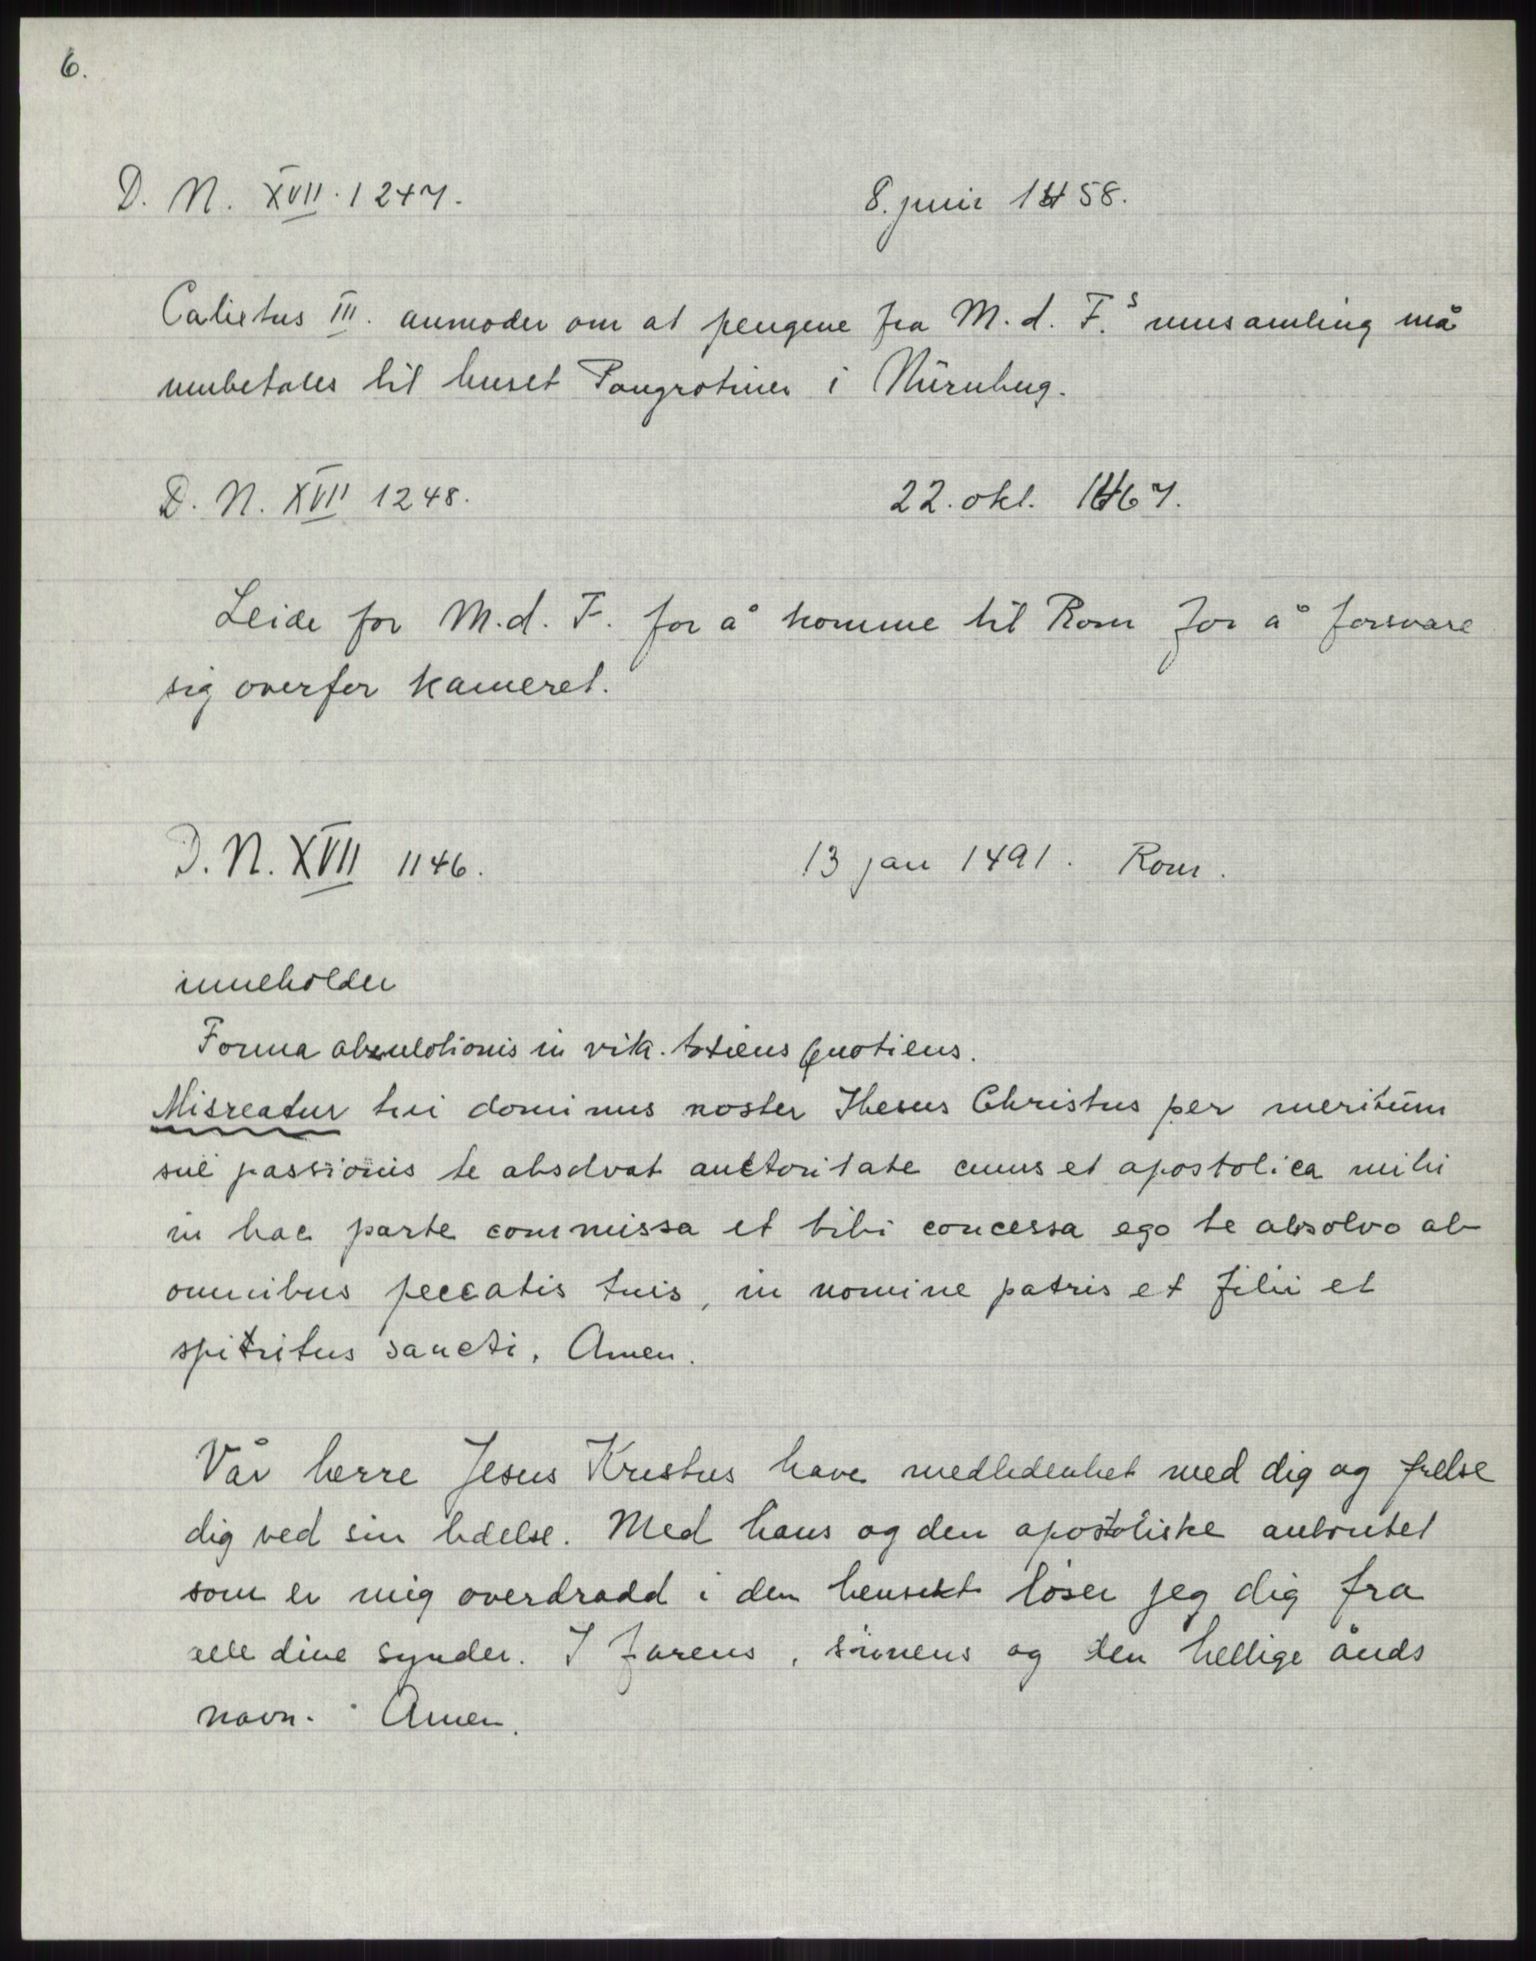 6.
D. N. XVII. 1247. 8. juni 1458.
Calixtus III. anmoder om at pengene fra M. d. F.s innsamling må
innbetales til huset Pangrotiner i Nürnberg.
D. N. XVII 1248. 22. okt. 1467.
Leide for M. d. F. for å komme til Rom for å forsvare
sig overfor kameret.
D. N. XVII 1146. 13 jan 1491. Rom.
inneholder
Forma absolutionis in vita totiens quotiens.
Misreatur tui dominus noster Jhesus Christus per meritum
sui passionis te absolvat auctoritate cuius et apostolica mihi
in hac parte commissa et tibi concessa ego te absolvo ab
omnibus peccatis tuis, in nomine patris et filii et
spiritus sancti. Amen.
Vår herre Jesus Kristus have medlidenhet med dig og frelse
dig ved sin lidelse. Med hans og den apostoliske autoritet
som er mig overdradd i den hensikt løser jeg dig fra
alle dine synder. I farens, sønnens og den hellige ånds
navn. Amen.